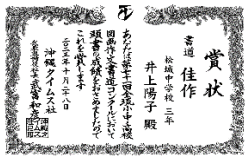 賞状
書道 佳作
松城中学校 三年
井上陽子殿
あなたは第十一回全沖小中高校
図画作文書道コンクールにおいて
頭書の成績をおさめましたので
これを賞します
十月二十八日
沖縄タイムス社